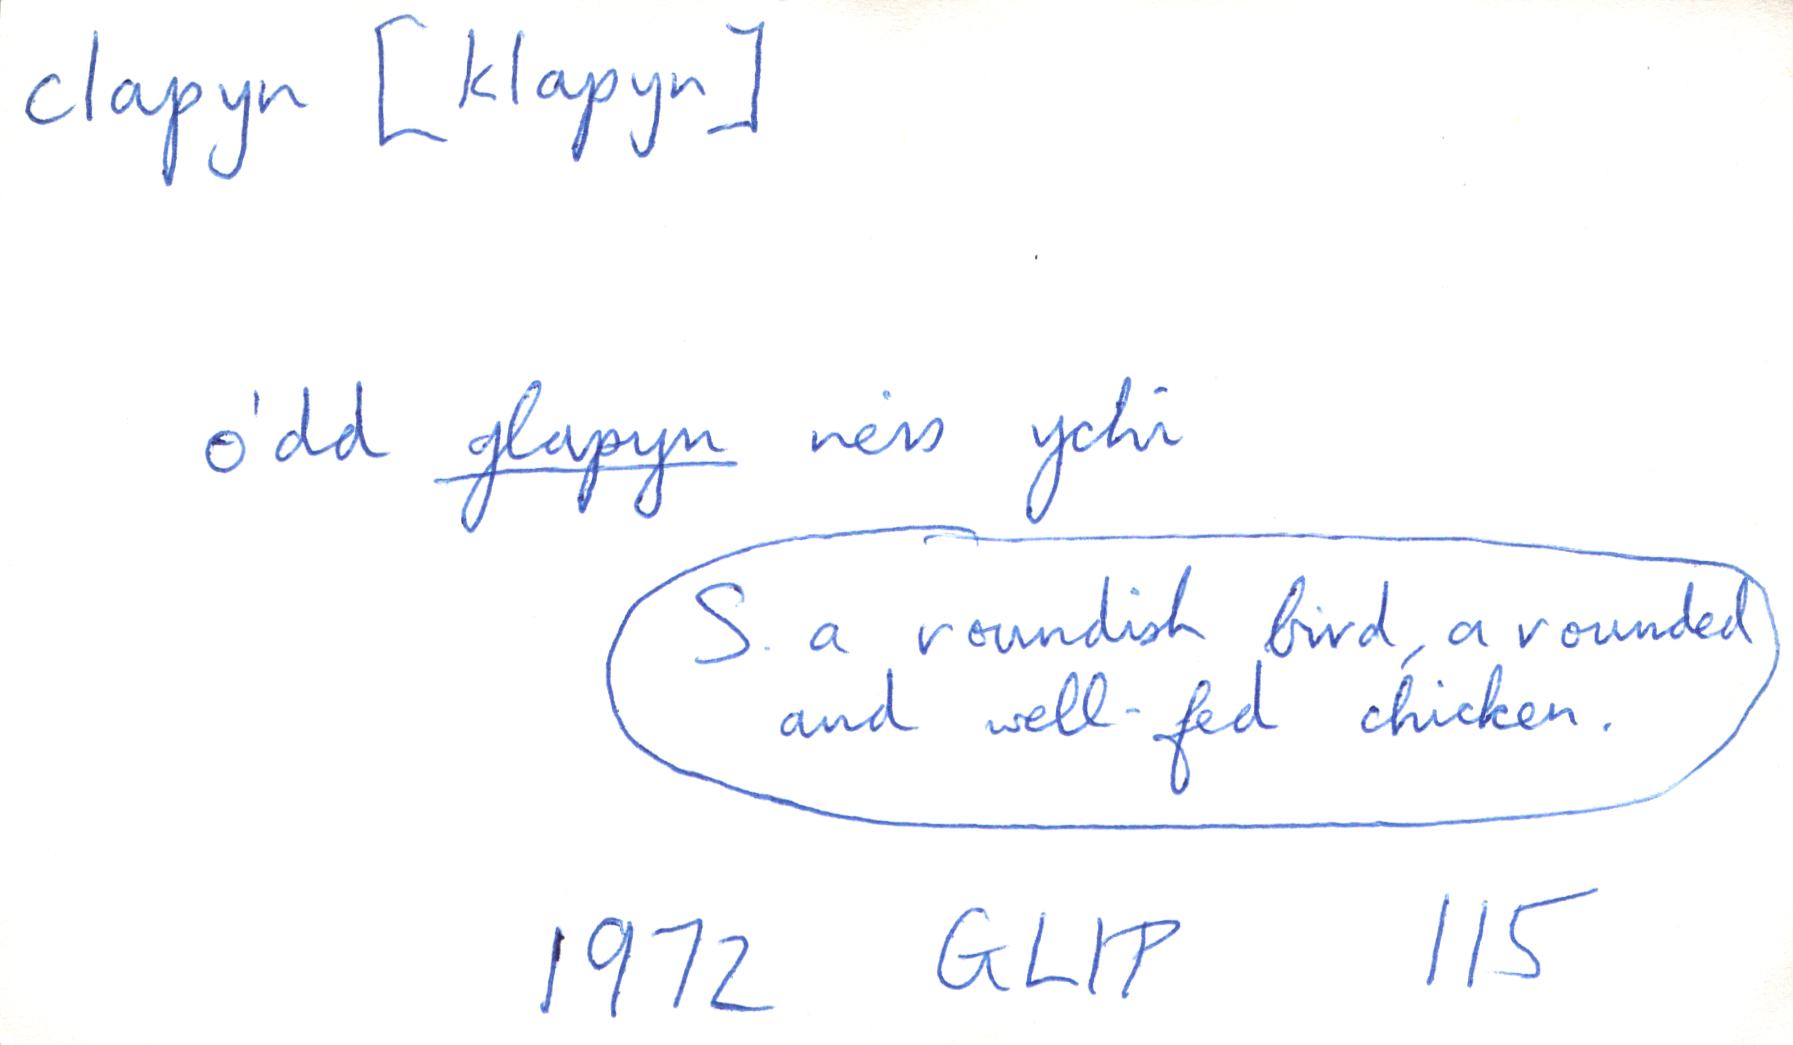 clapyn [klapyn]
o'dd glapyn nêis ychi
S. a roundish bird, a rounded
and well-fed chicken.
1972 GLIP 115